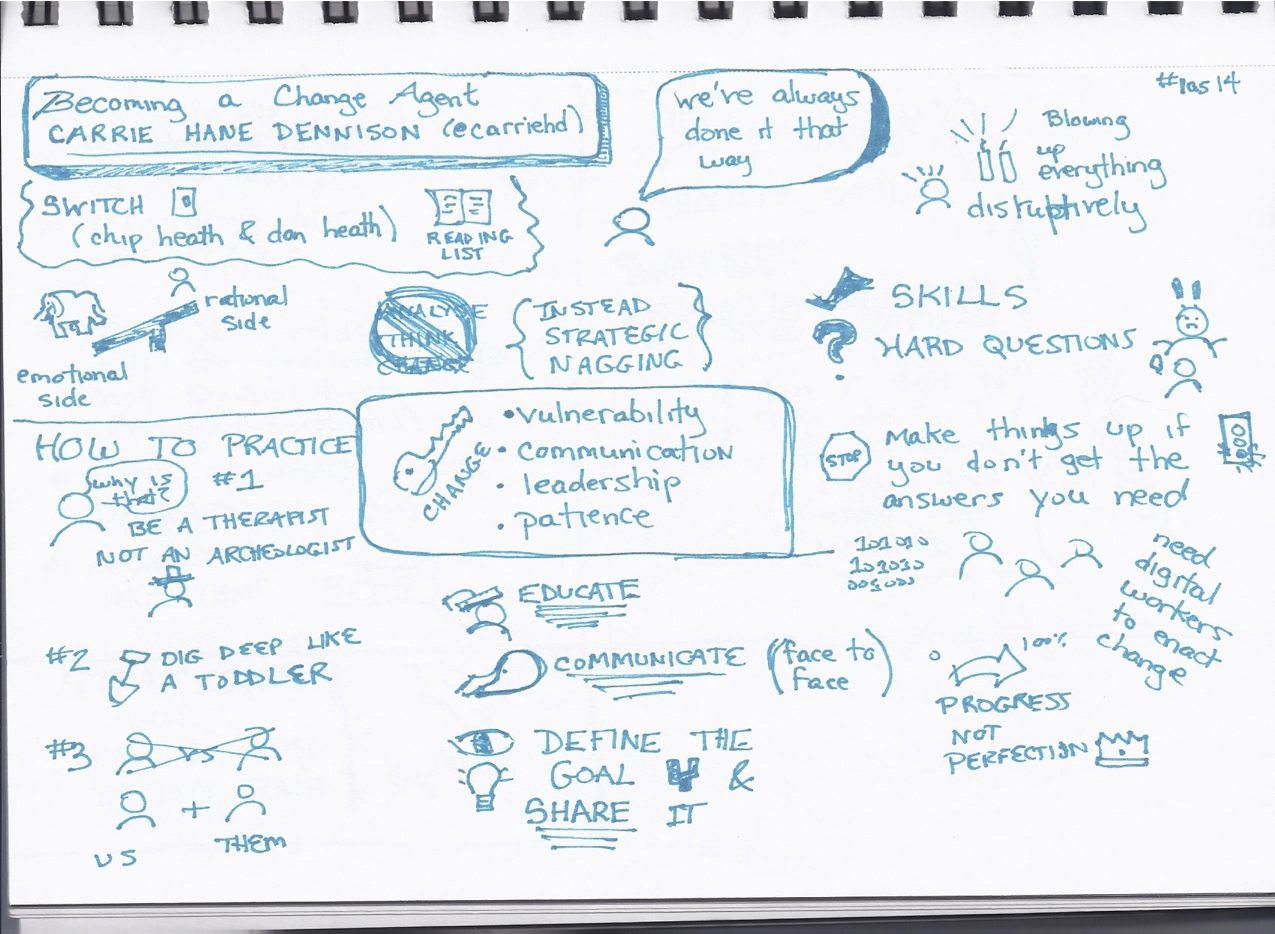 Becoming a Change Agent
CARRIE HANE DENNISON (@carriehd)
we've always
done it that
way
#ias14
Blowing
up
everything
disruptively
SWITCH
(chip heath & dan heath)
READING
LIST
rational
side
emotional
side
ANALYSE
THINK
CHANGE
INSTEAD
STRATEGIC
NAGGING
SKILLS
HARD QUESTIONS
CHANGE
•vulnerability
•communication
•leadership
•patience
STOP
Make things up if
you don't get the
answers you need
HOW TO PRACTICE
why is
that?
#1
BE A THERAPIST
NOT AN ARCHEOLOGIST
#2 DIG DEEP LIKE
A TODDLER
#3
vs
+
US
THEM
EDUCATE
COMMUNICATE (face to
face)
DEFINE THE
GOAL &
SHARE IT
101010
101010
001000
need
digital
workers
to enact
change
0 100%
PROGRESS
NOT
PERFECTION